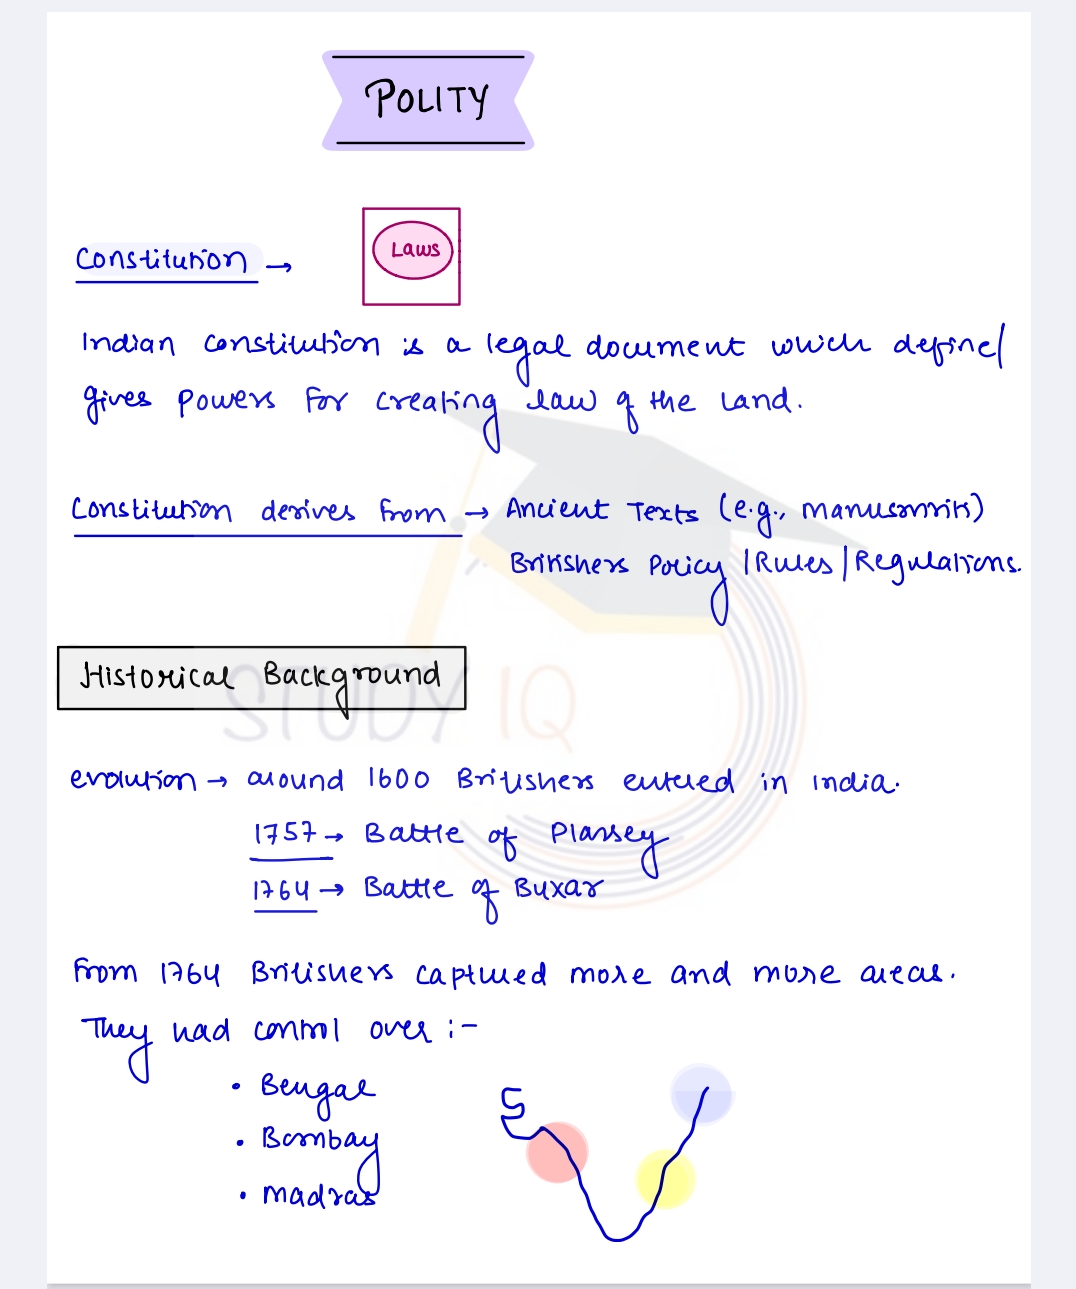 POLITY
Constitution →
Laws
Indian Constitution is a legal document which define/
gives Powers for creating law of the Land.
Constitution derives from → Ancient Texts (e.g., Manusmriti)
Britishers Policy / Rules / Regulations.
Historical Background
STUDY IQ
evolution → around 1600 Britishers entered in India.
1757 → Battle of Plassey
1764 → Battle of Buxar
From 1764 Britishers captured more and more areas.
They had control over :-
• Bengal
• Bombay
• Madras